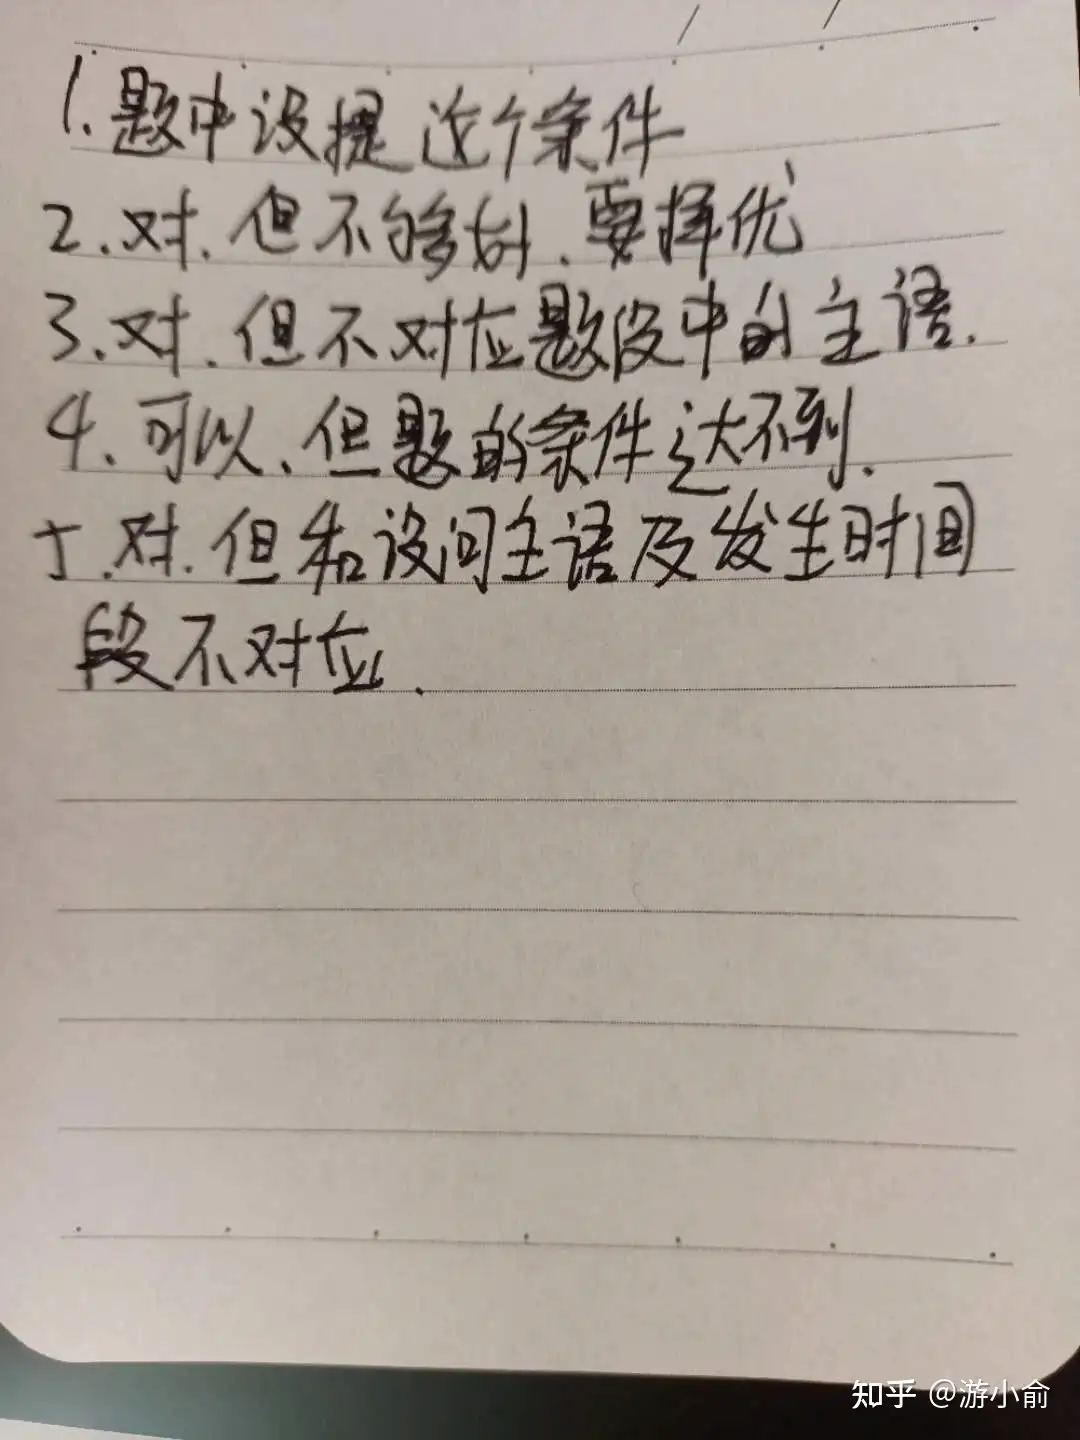 1.题中没提这个条件
2.对.但不够划.要择优
3.对.但不对应题设中的主语.
4.可以、但题的条件达不到.
5.对.但和设问主语及发生时间
段不对应.
知乎 @游小俞